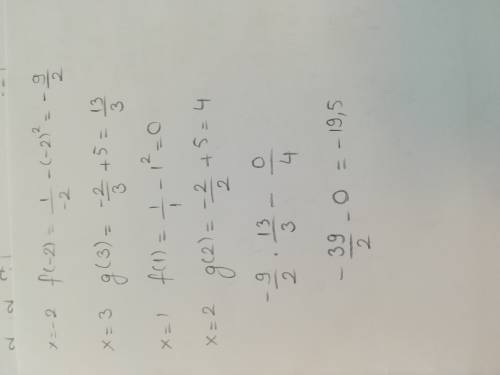 x=-2 f(-2) = 1/-2 - (-2)² = -9/2
x=3 g(3) = -2/3 + 5 = 13/3
x=1 f(1) = 1/1 - 1² = 0
x=2 g(2) = -2/2 + 5 = 4
-9/2 · 13/3 - 0/4
-39/2 - 0 = -19,5